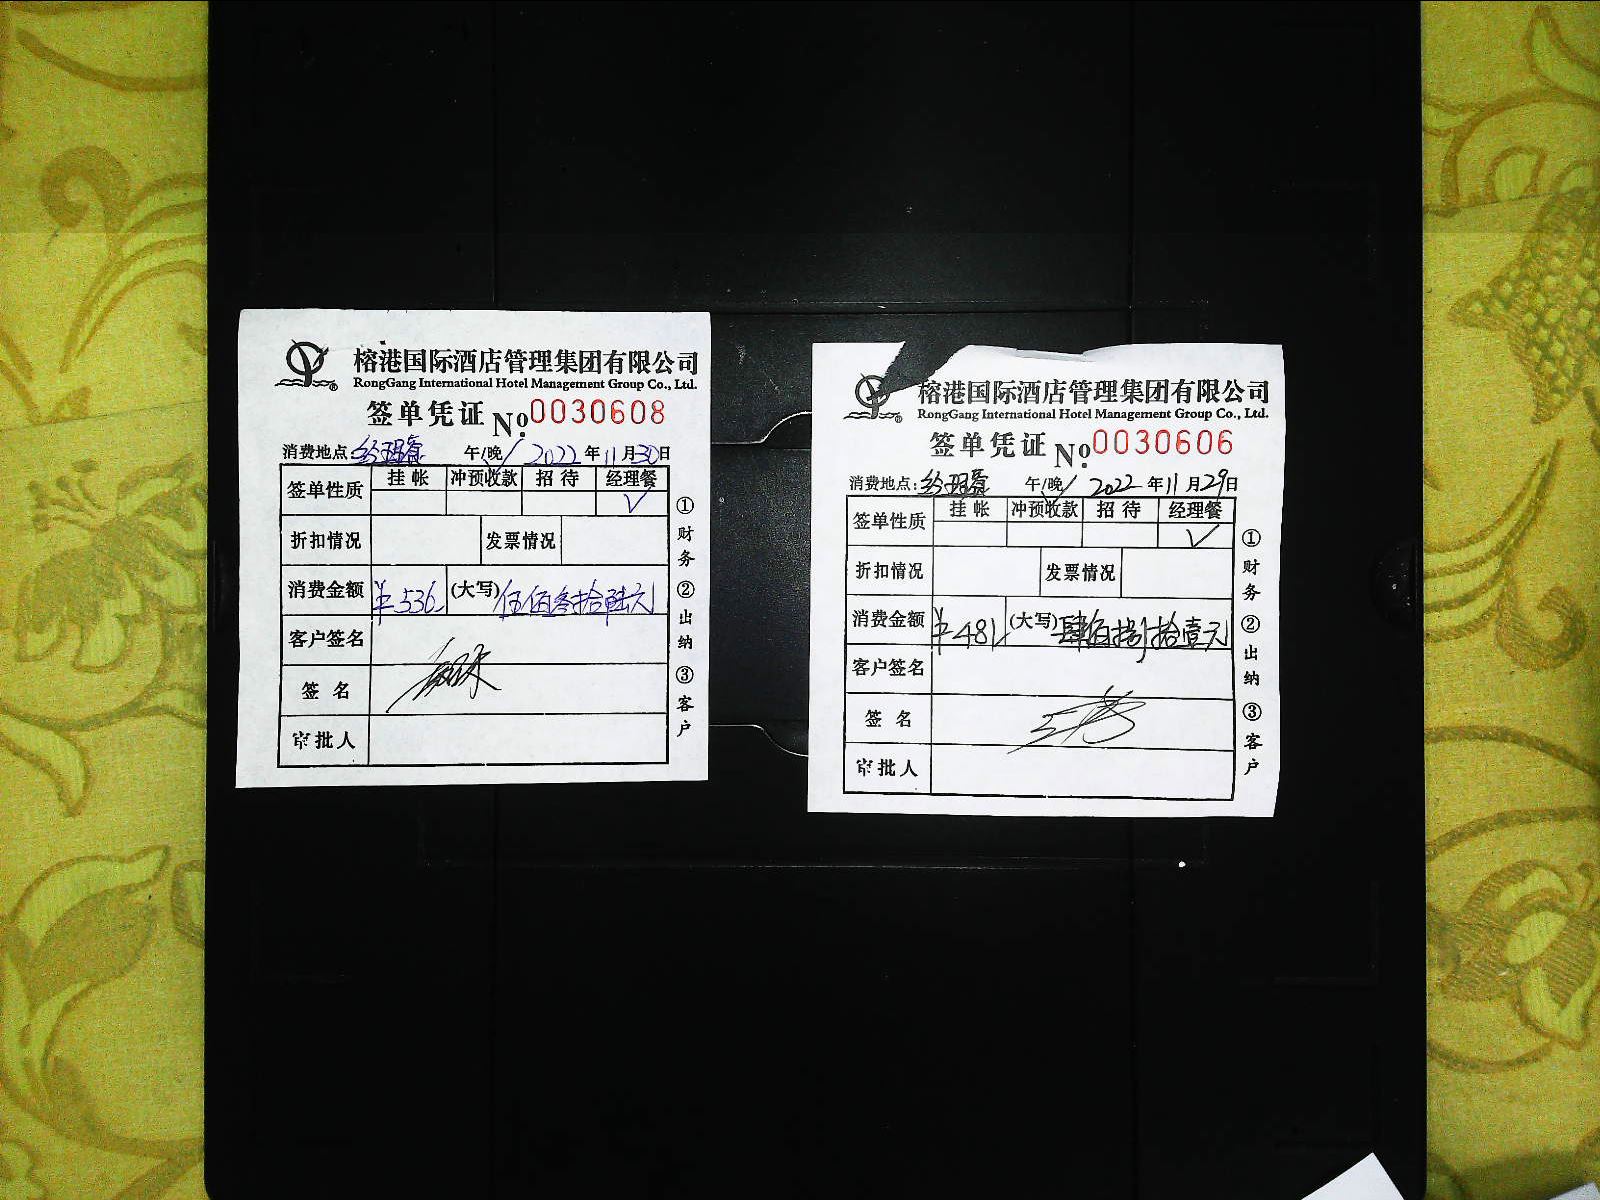 榕港国际酒店管理集团有限公司
RongGang International Hotel Management Group Co., Ltd.
签单凭证 No. 0030608
消费地点: 经理餐 午/晚 ✓ 2022 年 11 月 30 日
签单性质 挂帐 冲预收款 招待 经理餐
✓
折扣情况 发票情况
消费金额 ¥536 (大写) 伍佰叁拾陆元
客户签名
签名
审批人
① 财务 ② 出纳 ③ 客户
榕港国际酒店管理集团有限公司
RongGang International Hotel Management Group Co., Ltd.
签单凭证 No. 0030606
消费地点: 经理餐 午/晚 ✓ 2022 年 11 月 29 日
签单性质 挂帐 冲预收款 招待 经理餐
✓
折扣情况 发票情况
消费金额 ¥481 (大写) 肆佰捌拾壹元
客户签名
签名
审批人
① 财务 ② 出纳 ③ 客户